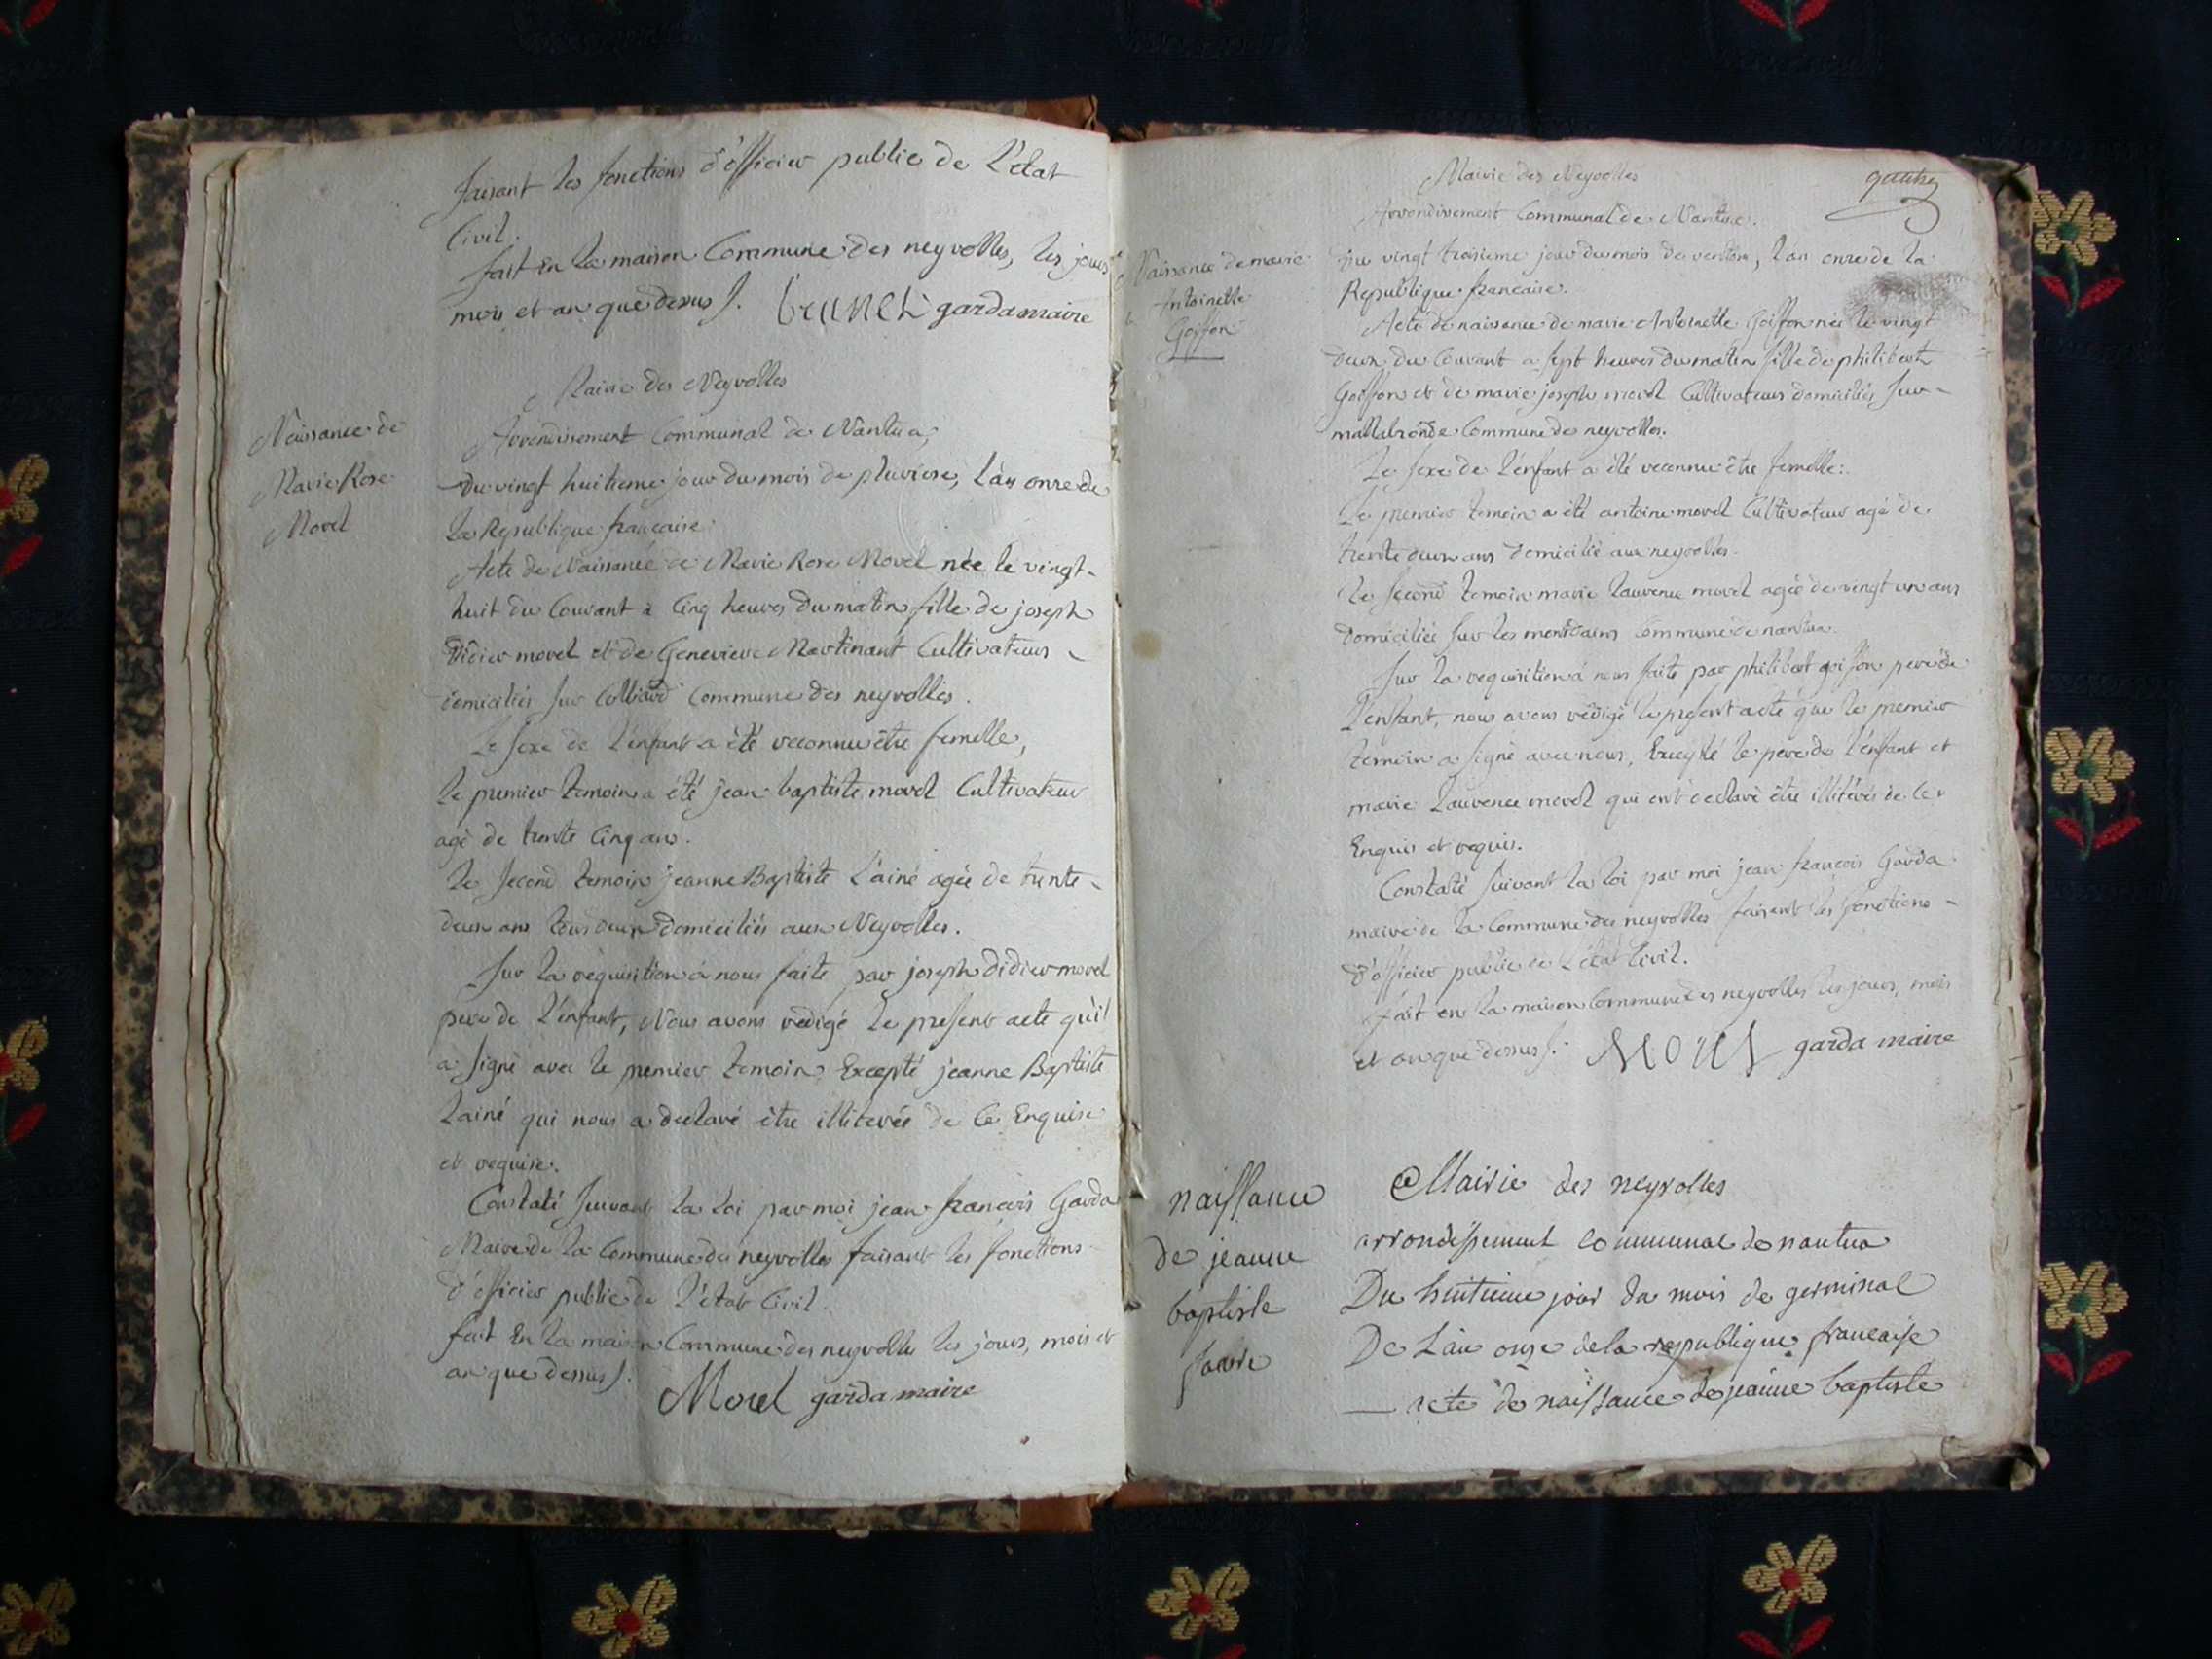 faisant les fonctions d'officier public de L'etat
Civil.
fait En la maison Commune des neyrolles, les jours
mois et an que dessus /. brunet garda maire
Mairie des Neyrolles
Naissance de
Marie Rose
Morel
Arrondissement Communal de Nantua,
Du vingt huitieme jour du mois de pluviose, L'an onze de
La Republique francaise.
Acte de Naissance de Marie Rose Morel née le vingt-
huit du Courant à Cinq heures du matin fille de joseph
Didier morel et de Genevieve Martinant Cultivateurs
domiciliés sur Colliard Commune des neyrolles.
Le sexe de L'enfant a été reconnu être femelle,
le premier temoin a été jean baptiste morel Cultivateur
agé de trente Cinq ans.
Le second temoin jeanne Baptiste L'ainé agée de trente-
deux ans tous deux domiciliés aux Neyrolles.
Sur la réquisition à nous faite par joseph didier morel
pere de L'enfant, Nous avons rédigé le present acte qu'il
a signé avec le premier temoin, Excepté jeanne Baptiste
Lainé qui nous a declaré être illiterée de Ce Enquise
et requise.
Constaté suivant La Loi par moi jean françois Garda
Maire de la Commune des neyrolles faisant les fonctions
d'officier public de L'état Civil.
fait En la maison Commune des neyrolles les jours, mois et
an que dessus /.
Morel garda maire
Mairie des Neyrolles
Arrondissement Communal de Nantua.
Naissance de marie
Antoinette
Goiffon
Du vingt troisieme jour du mois de ventose, L'an onze de la
Republique francaise.
Acte de naissance de marie Antoinette Goiffon née le vingt
deux du Courant a sept heures du matin fille de philibert
Goiffon et de marie joseph morel Cultivateurs domiciliés sur
mallabronde Commune des neyrolles.
Le sexe de L'enfant a été reconnu être femelle.
Le premier temoin a été antoine morel Cultivateur agé de
trente deux ans domicilié aux neyrolles.
Le second temoin marie Laurence morel agée de vingt un ans
domiciliée sur les montdains Commune de nantua.
Sur la requisition à nous faite par philibert goiffon pere de
L'enfant, nous avons rédigé le present acte que le premier
temoin a signé avec nous, Excepté le pere de L'enfant et
marie Laurence morel qui ont declaré être illiterés de ce
Enquis et requis.
Constaté suivant la Loi par moi jean françois Garda
maire de la Commune des neyrolles faisant les fonctions
d'officier public de L'état Civil.
fait en la maison Commune des neyrolles les jours, mois
et an que dessus /. garda maire
naissance
de jeanne
baptiste
Mairie des neyrolles
arrondissement communal de nantua
Du huitieme jour du mois de germinal
De L'an onze de la republique francaise
acte de naissance de jeanne baptiste